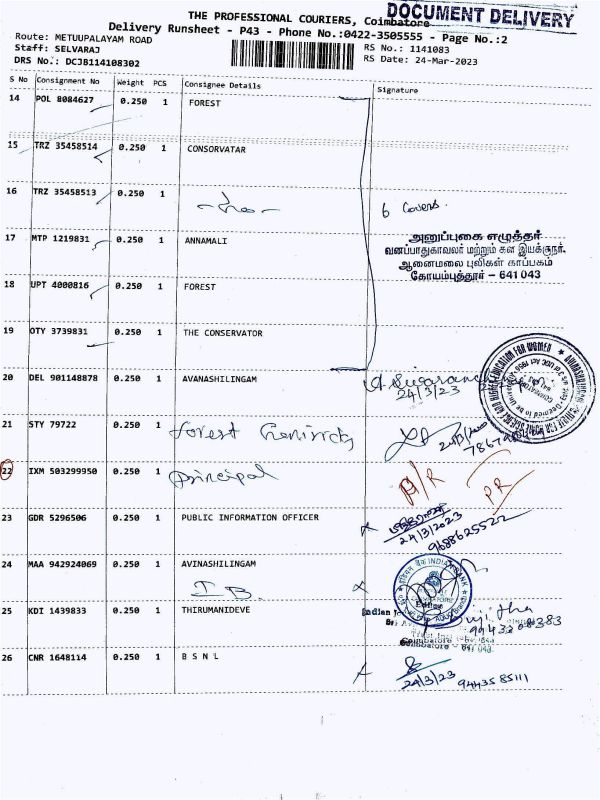 DOCUMENT DELIVERY
THE PROFESSIONAL COURIERS, Coimbatore
Delivery Runsheet - P43 - Phone No.:0422-3505555 - Page No.:2
Route: METUUPALAYAM ROAD
RS No.: 1141083
Staff: SELVARAJ
RS Date: 24-Mar-2023
DRS No.: DCJB114108302
S No Consignment No Weight PCS Consignee Details Signature
14 POL 8084627 0.250 1 FOREST
15 TRZ 35458514 0.250 1 CONSORVATAR
16 TRZ 35458513 0.250 1 6 Covers.
17 MTP 1219831 0.250 1 ANNAMALI
அனுப்புகை எழுத்தர்
வனப்பாதுகாவலர் மற்றும் கள இயக்குநர்,
ஆனைமலை புலிகள் காப்பகம்
கோயம்புத்தூர் – 641 043
18 UPT 4000816 0.250 1 FOREST
19 OTY 3739831 0.250 1 THE CONSERVATOR
20 DEL 901148878 0.250 1 AVANASHILINGAM
24/3/23
21 STY 79722 0.250 1 forest
22 IXM 503299950 0.250 1 principal
PR
23 GDR 5296506 0.250 1 PUBLIC INFORMATION OFFICER
24/3/2023
9688625522
24 MAA 942924069 0.250 1 AVINASHILINGAM
I.B.
INDIAN BANK
25 KDI 1439833 0.250 1 THIRUMANIDEVE
Editor
Coimbatore
26 CNR 1648114 0.250 1 B S N L
24/3/23 9443585111